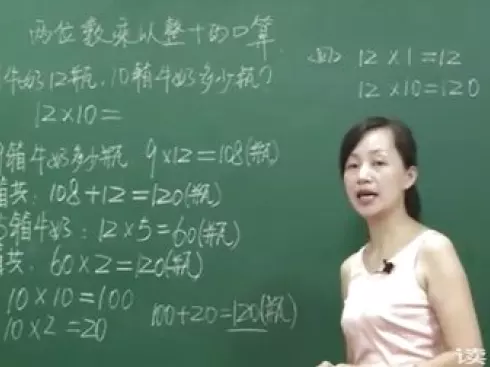 两位数乘以整十的口算
牛奶12瓶,10箱牛奶多少瓶?
12×10=
箱牛奶多少瓶 9×12=108(瓶)
共:108+12=120(瓶)
5箱牛奶:12×5=60(瓶)
共:60×2=120(瓶)
10×10=100
10×2=20
100+20=120(瓶)
12×1=12
12×10=120
读